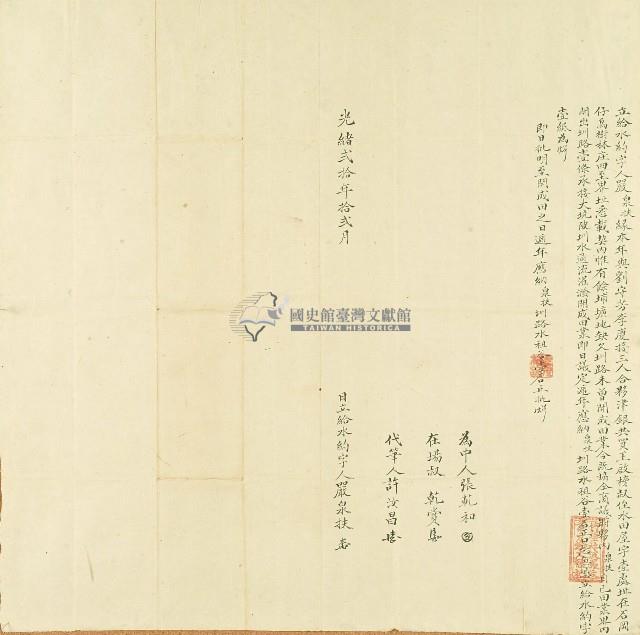 立給水約字人嚴泉扶緣本年與劉宇芳李慶接三人合夥津銀共買王啟榜叔侄水田屋宇壹處址在石岡
仔烏樹林庄四至界址悉載契內惟有餘埔壙地缺欠圳路未曾開成田業今既協仝商議泉扶自己田業界內
開出圳路壹條承接大坑陂圳水通流灌溉開成田業即日議定遞年應納泉扶圳路水租谷壹石正立給水約字
壹紙為炤
即日批明至開成田之日遞年應納泉扶圳路水租谷壹石正批炤
為中人張乾和
在場叔 乾
代筆人許汝昌
光緒貳拾年拾貳月 日立給水約字人嚴泉扶
國史館臺灣文獻館
TAIWAN HISTORICA